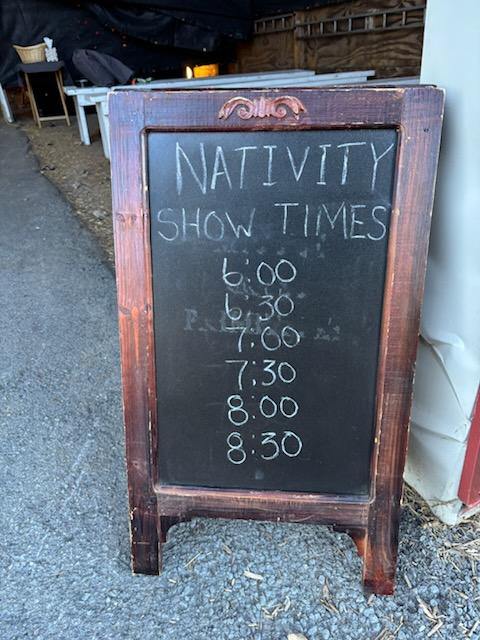 NATIVITY
SHOW TIMES
6:00
6:30
7:00
7:30
8:00
8:30